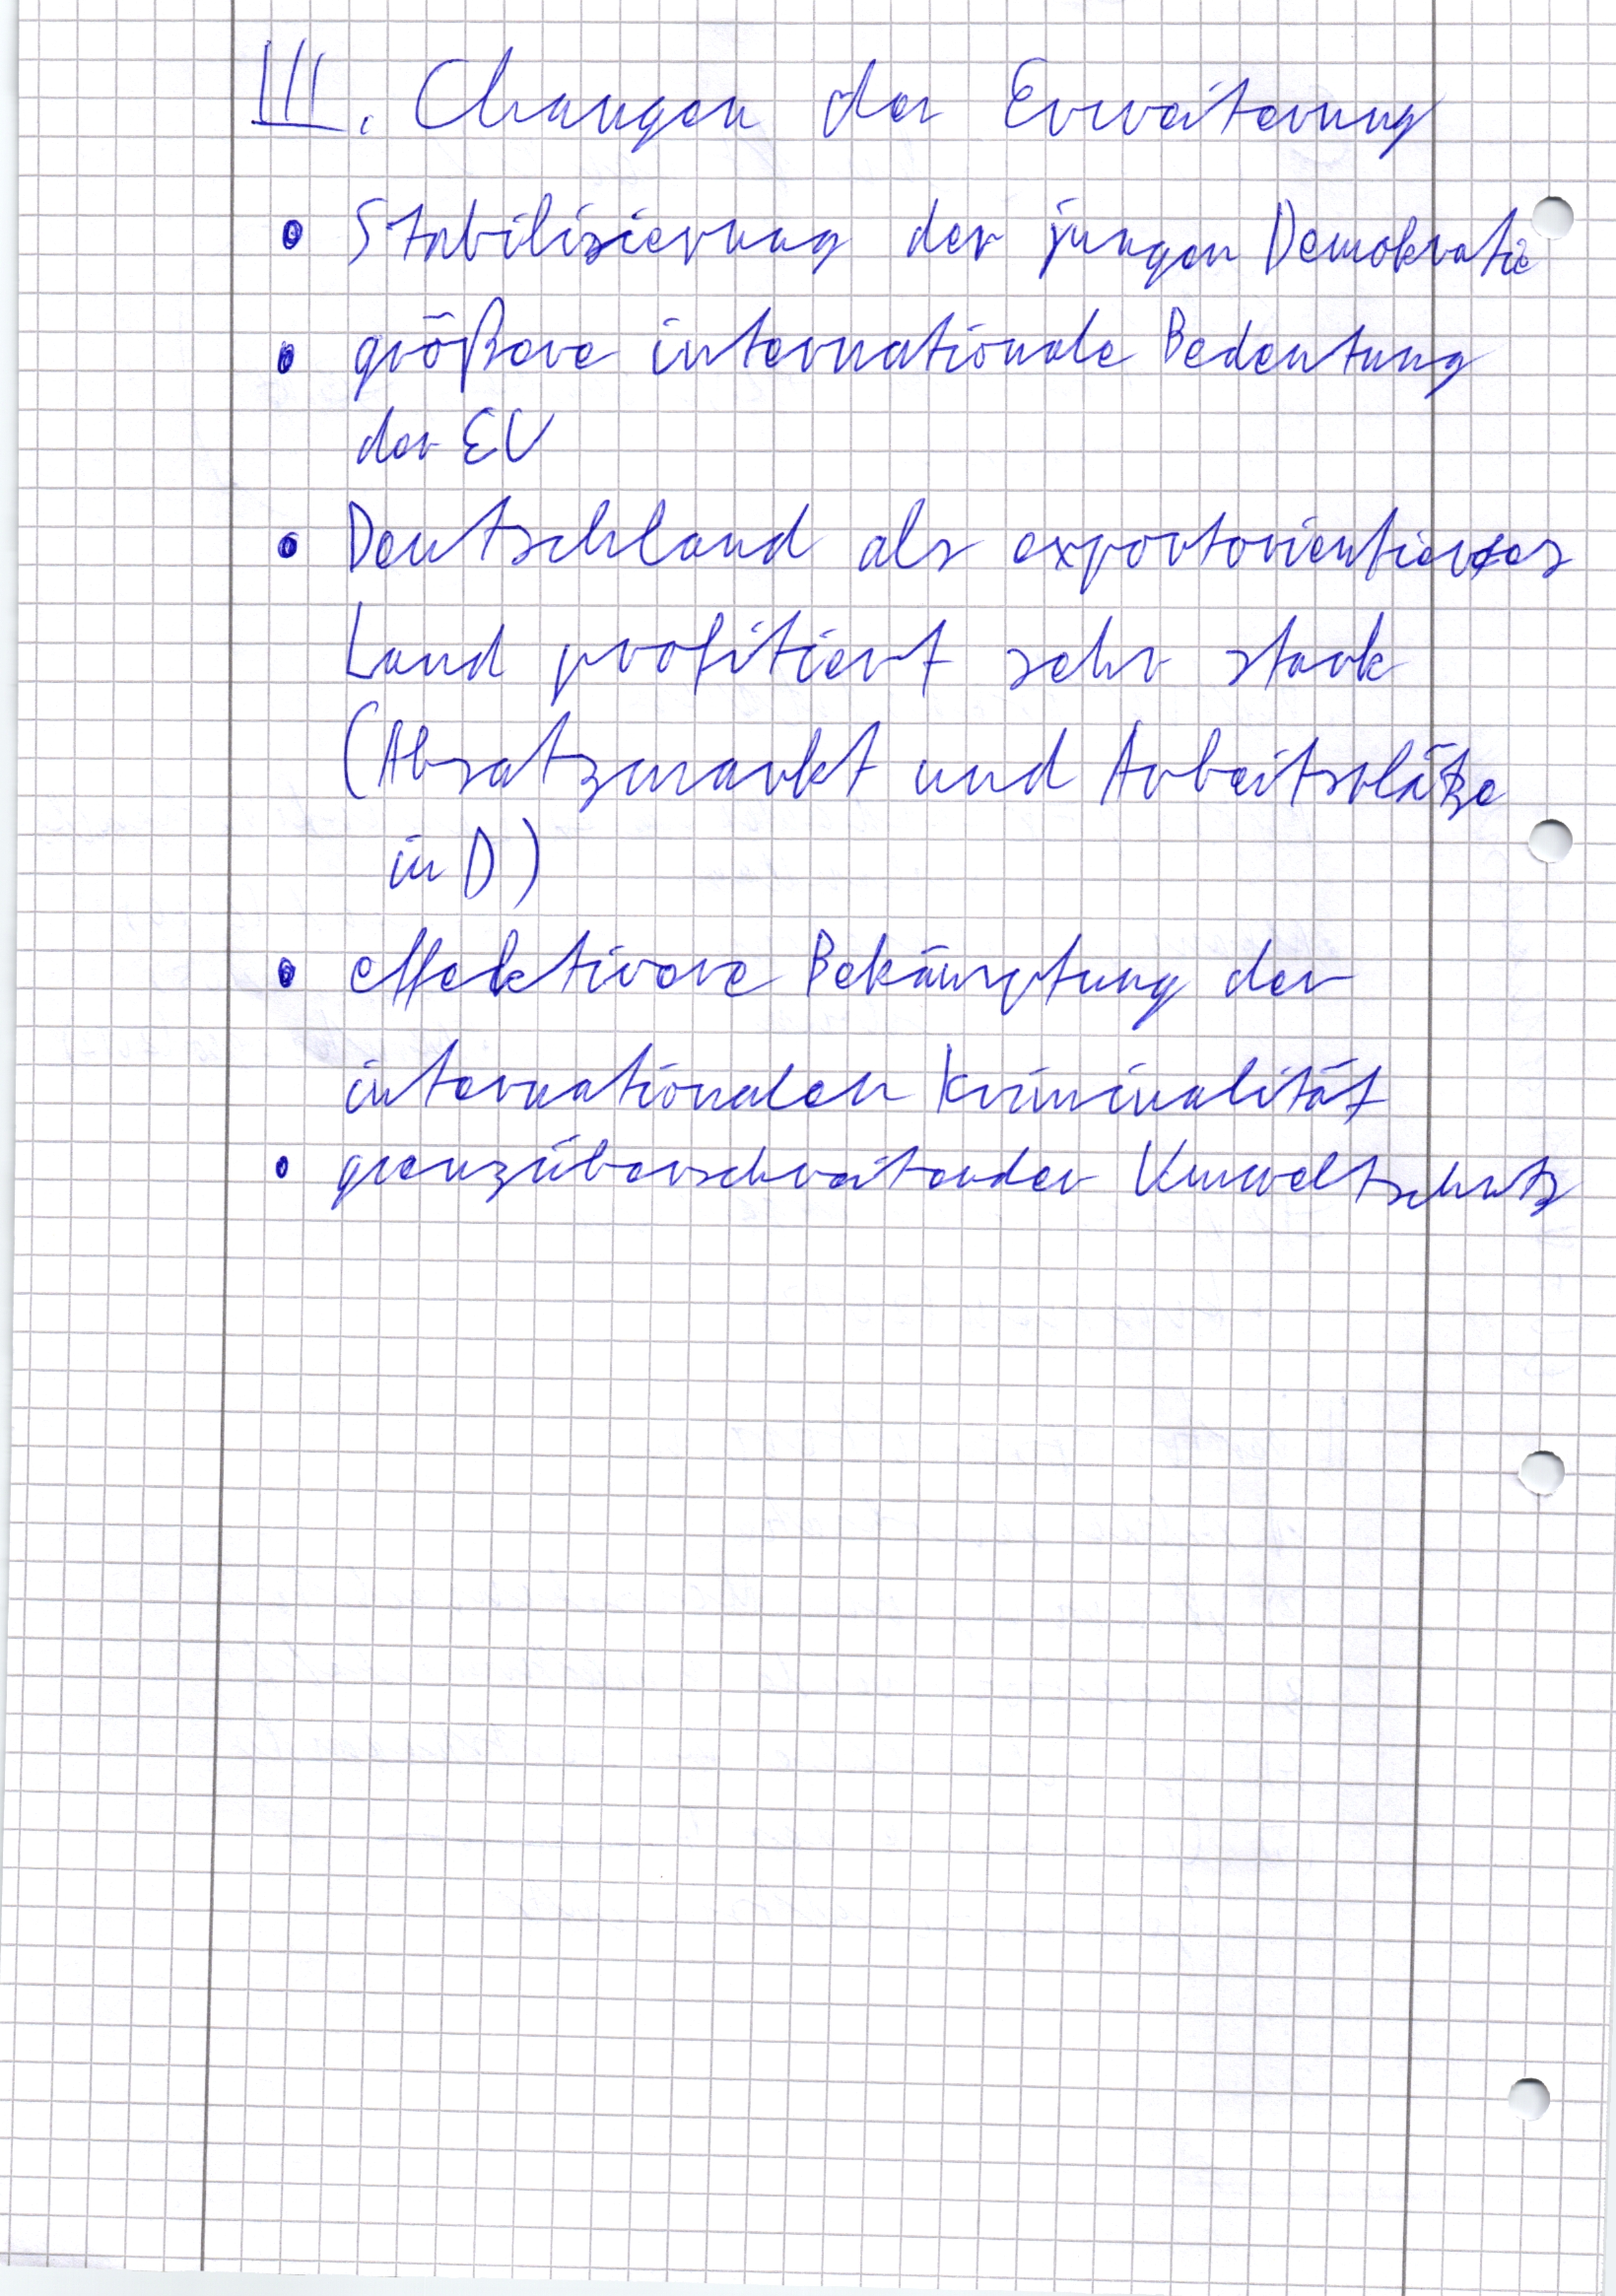 III. Changen der Erweiterung
• Stabilisierung der jungen Demokratie
• größere internationale Bedeutung
der EU
• Deutschland als exportorientiertes
Land profitiert sehr stark
(Absatzmarkt und Arbeitsplätze
in D)
• effektivere Bekämpfung der
internationalen Kriminalität
• grenzüberschreitender Umweltschutz